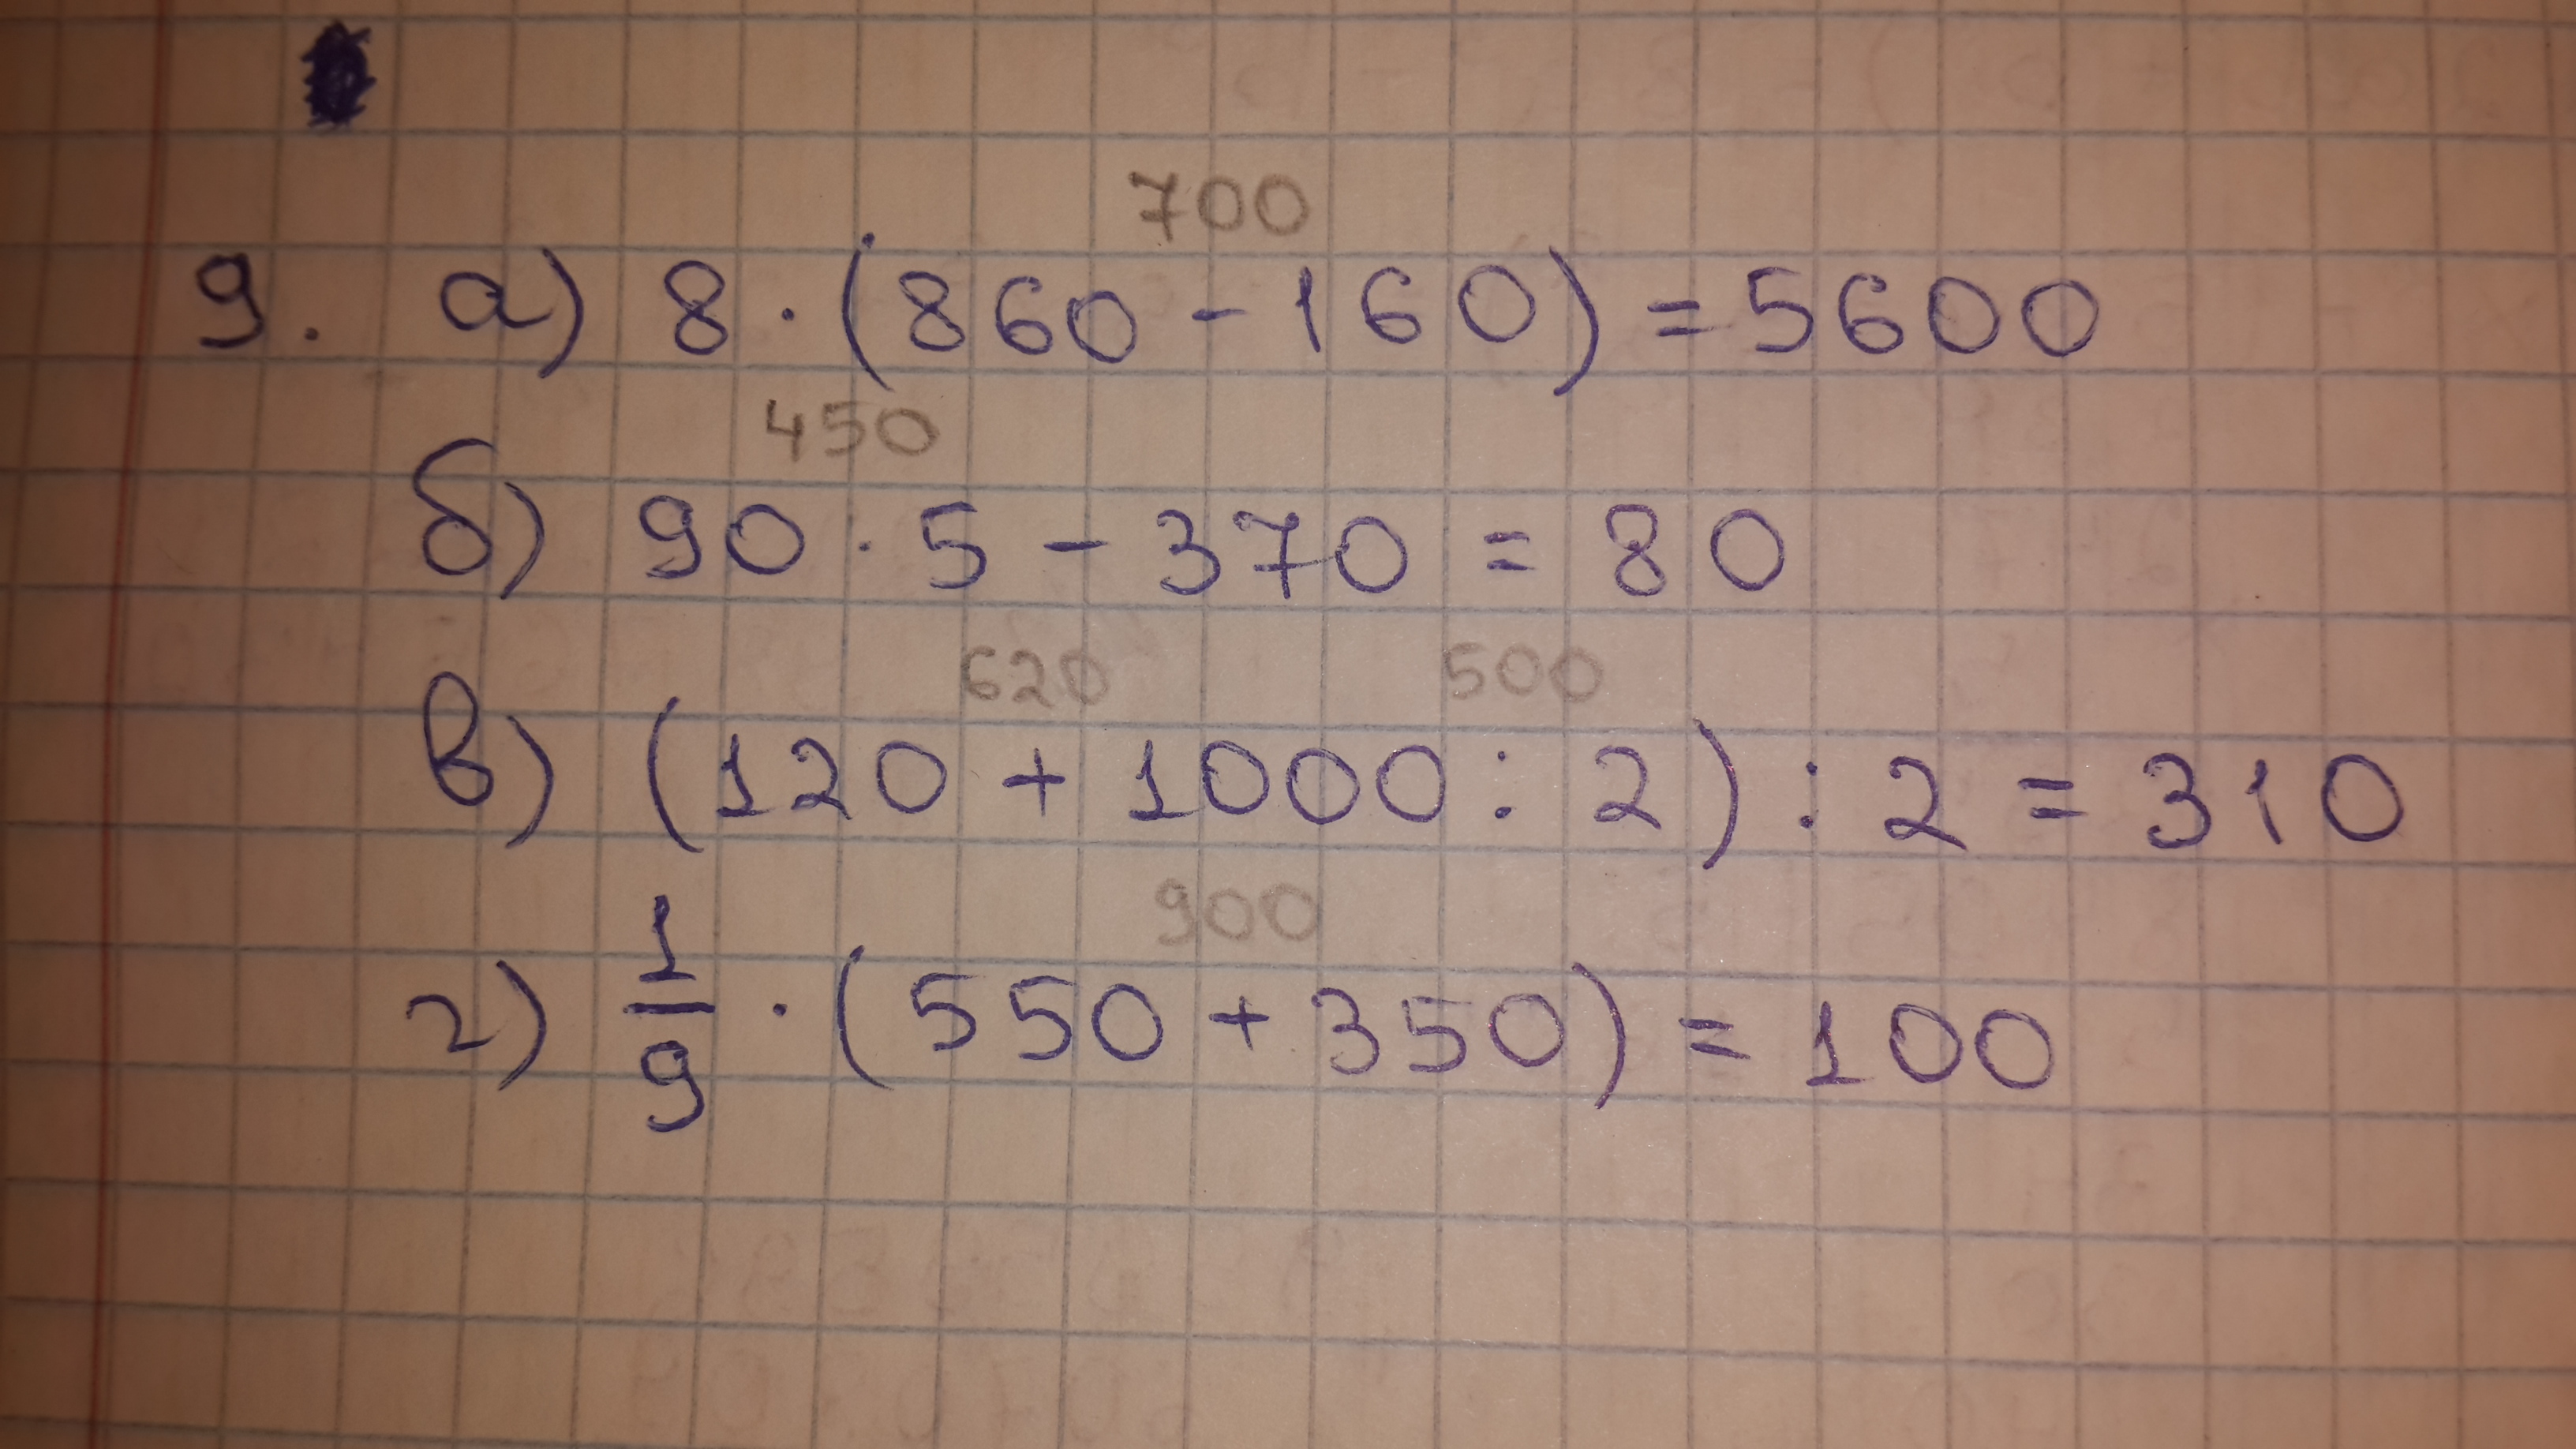 700
9. а) 8 · (860 - 160) = 5600
450
б) 90 · 5 - 370 = 80
620 500
в) (120 + 1000 : 2) : 2 = 310
900
г) 1/9 · (550 + 350) = 100